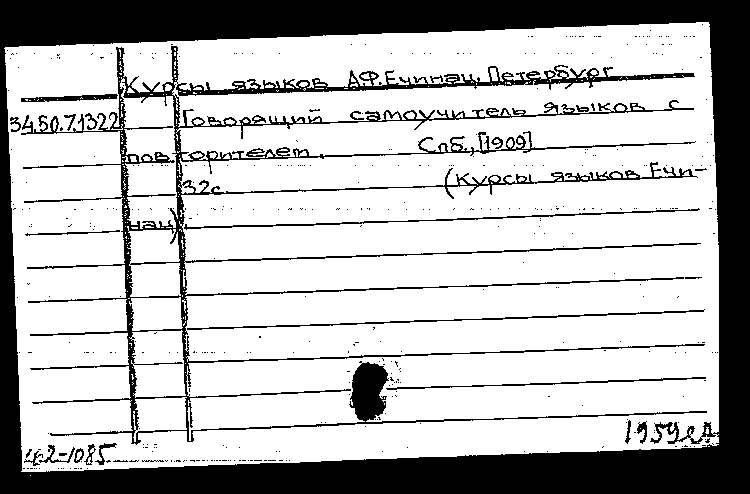 Курсы языков А.Ф.Ечинац, Петербург
34.50.7.1322 Говорящий самоучитель языков с
повторителем. Спб., [1909]
32с. (Курсы языков Ечи-
нац).
462-1085